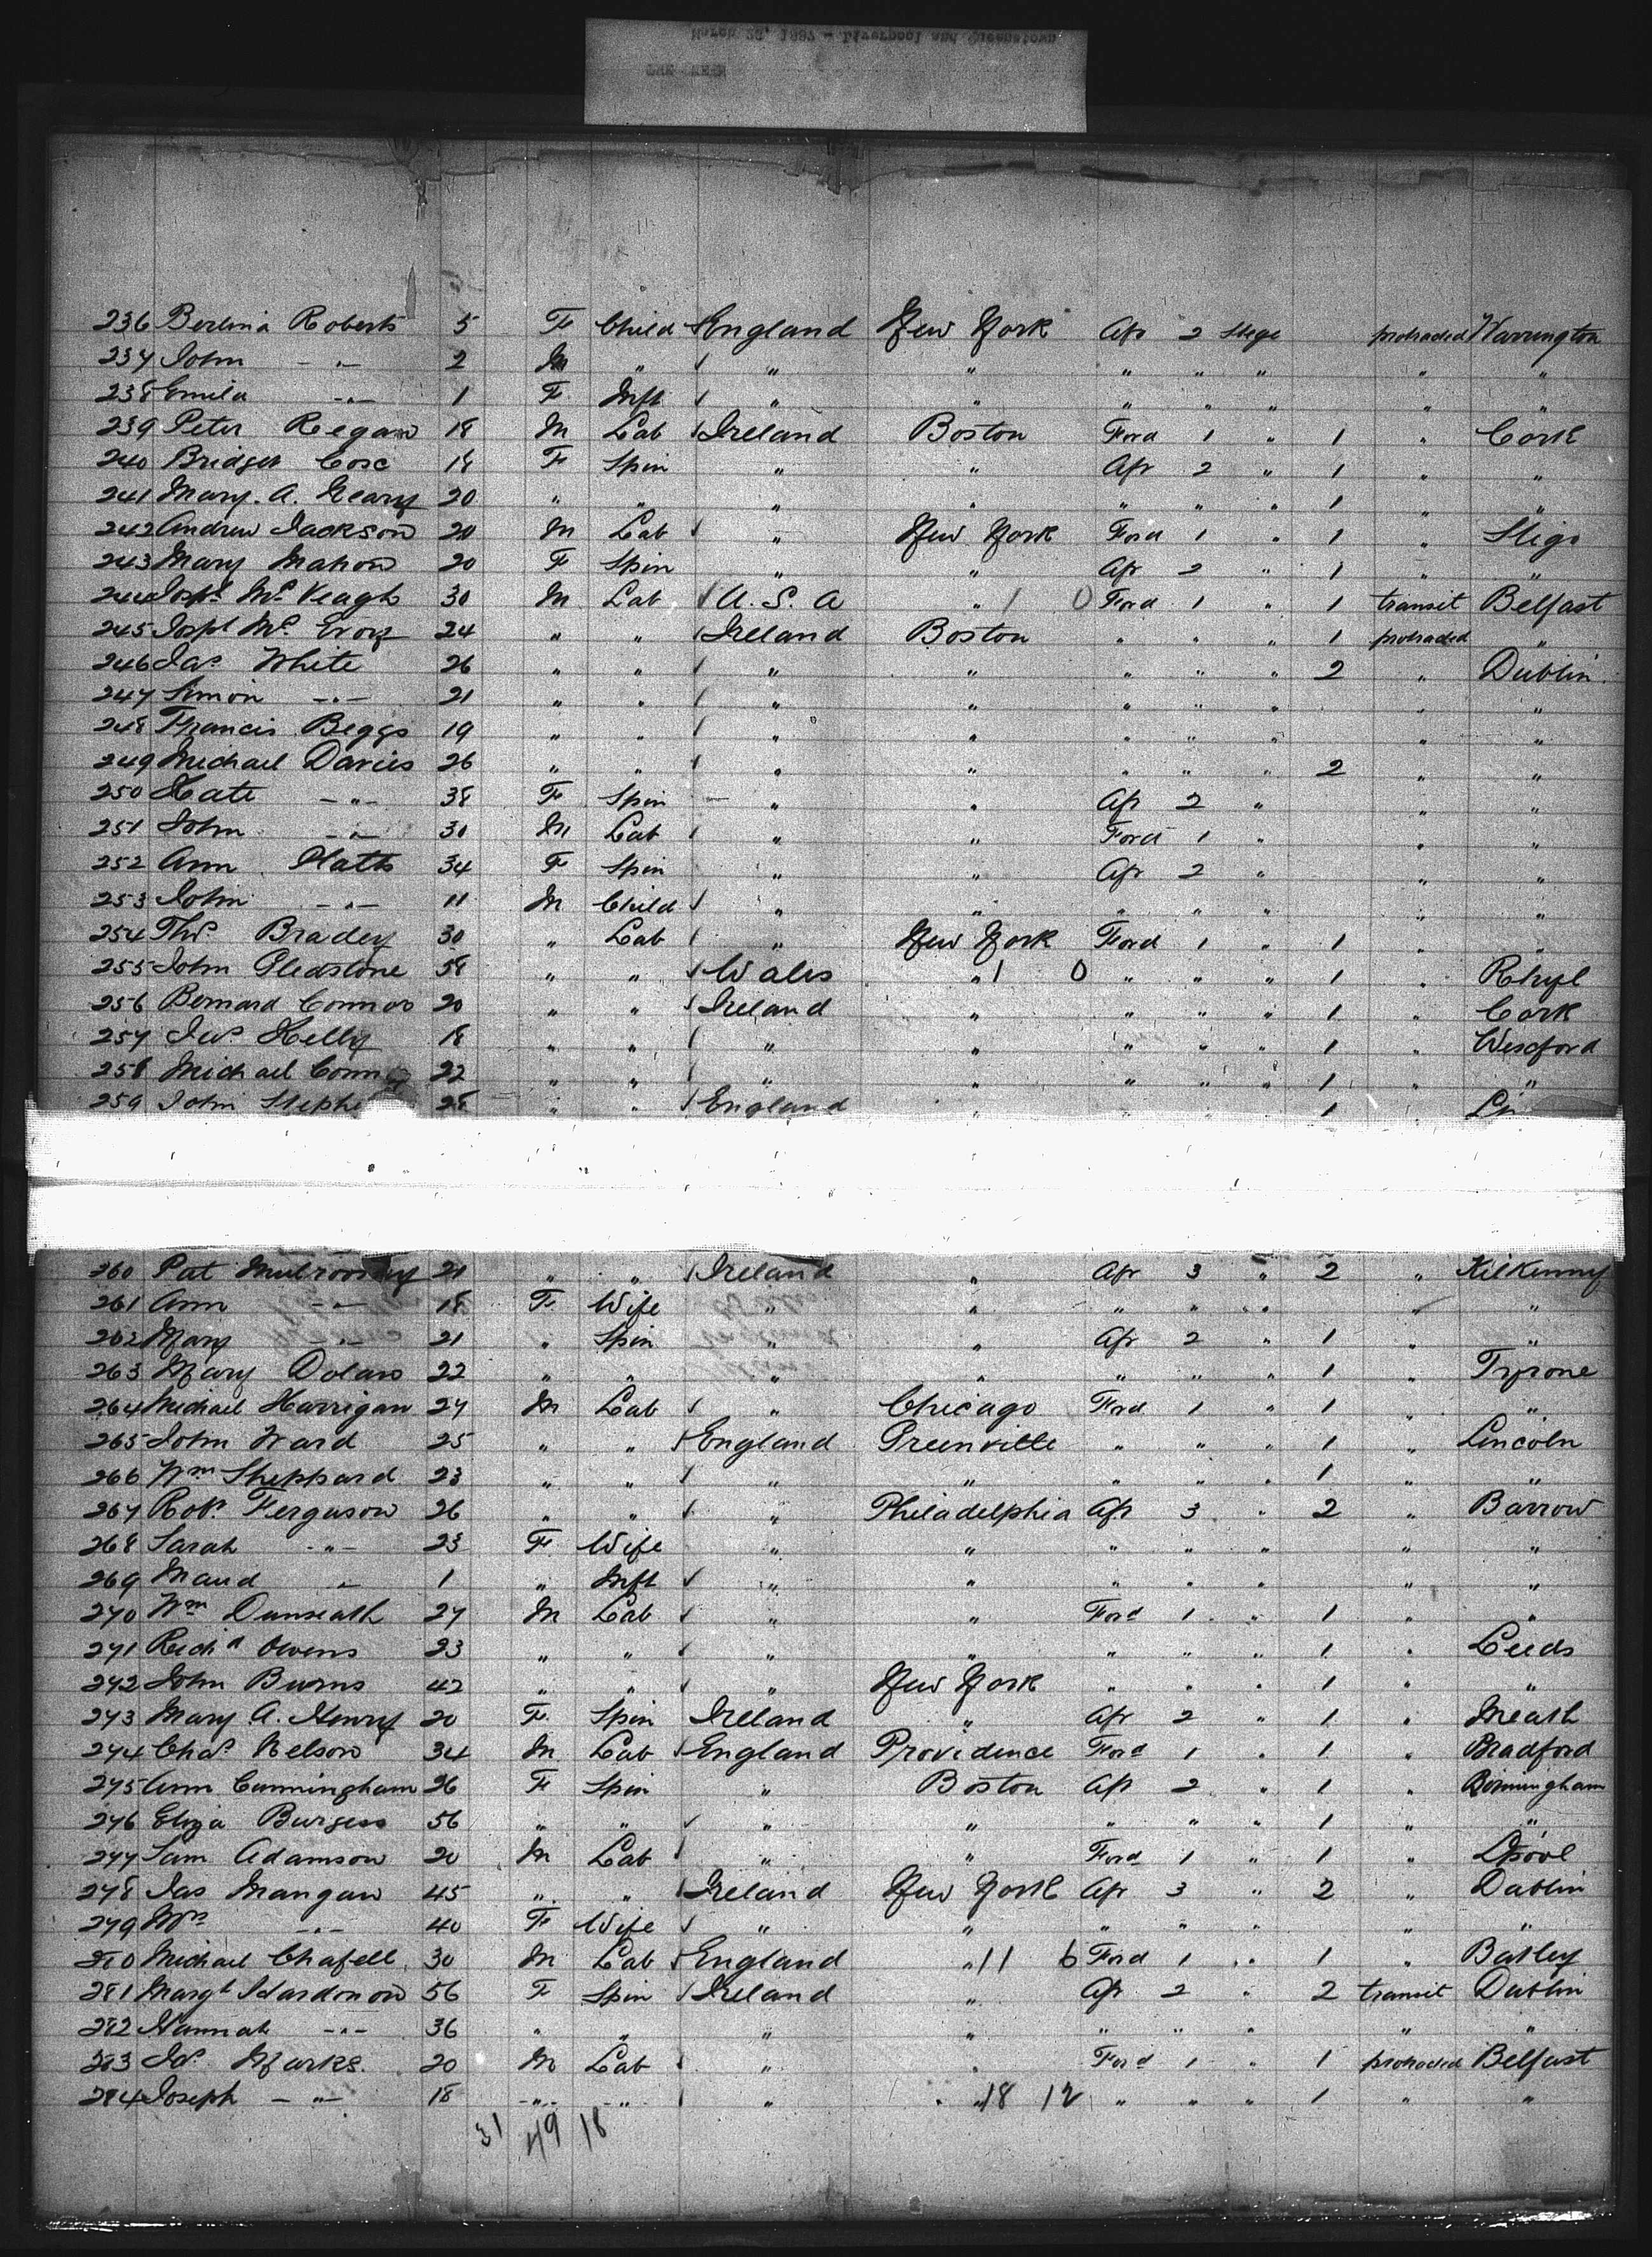 March 22, 1887 - Liverpool and Queenstown
236 Berlina Roberts 5 F Child England New York Aft 2 Stege protracted Warrington
237 John -"- 2 M " " " " " " " "
238 Emila -"- 1 F Inft " " " " " " "
239 Peter Regan 18 M Lab Ireland Boston Ford 1 " 1 " Cork
240 Bridget 18 F Spin " " Aft 2 " 1 " "
241 Mary. A. Geary 20 " " " " " " " 1 " "
242 Andrew Jackson 20 M Lab " New York Ford 1 " 1 " Sligo
243 Mary Mahon 20 F Spin " " Aft 2 " 1 " "
244 Josph Mc Veagh 30 M Lab U. S. A " 1 0 Ford 1 " 1 transit Belfast
245 Josph Mc Evoy 24 " " Ireland Boston " " " 1 protracted "
246 Jas White 26 " " " " " " " 2 " Dublin
247 Simon -"- 21 " " " " " " " " "
248 Francis Beggs 19 " " " " " " " " "
249 Michael Davies 26 " " " " " " " 2 " "
250 Kate -"- 38 F Spin " " Aft 2 " " "
251 John -"- 30 M Lab " " Ford 1 " " "
252 Ann Platts 34 F Spin " " Aft 2 " " "
253 John -"- 11 M Child " " " " " " "
254 Thos Bradey 30 " Lab " New York Ford 1 " 1 " "
255 John Gledstone 58 " " Wales " 1 0 " " " 1 " Rhyl
256 Bernard Connor 20 " " Ireland " " " " 1 " Cork
257 Jas Kelly 18 " " " " " " " 1 " Wexford
258 Michael 22 " " " " " " " 1 " "
259 John Stephe 28 " " England " " " " 1 " Li
260 Pat 21 " " Ireland " Aft 3 " 2 " Kilkenny
261 Ann -"- 18 F Wife " " " " " " "
262 Mary -"- 21 " Spin " " Aft 2 " 1 " "
263 Mary Dolan 22 " " " " " " " 1 " Tyrone
264 Michael Harrigan 27 M Lab " Chicago Ford 1 " 1 " "
265 John Ward 25 " " England Greenville " " " 1 " Lincoln
266 Wm Sheppard 23 " " " " " " " 1 " "
267 Robt Ferguson 26 " " " Philadelphia Aft 3 " 2 " Barrow
268 Sarah -"- 23 F Wife " " " " " " "
269 Maud " 1 " Inft " " " " " " "
270 Wm Dunseath 27 M Lab " " Ford 1 " 1 " "
271 Richd Owens 23 " " " " " " " 1 " Leeds
272 John Burns 42 " " " New York " " " 1 " "
273 Mary A. Henry 20 F Spin Ireland " Aft 2 " 1 " Meath
274 Chas Nelson 34 M Lab England Providence Ford 1 " 1 " Bradford
275 Ann Cunningham 26 F Spin " Boston Aft 2 " 1 " Birmingham
276 Eliza Burgess 56 " " " " " " " 1 " "
277 Sam Adamson 20 M Lab " " Ford 1 " 1 " Lpool
278 Jas Mangan 45 " " Ireland New York Aft 3 " 2 " Dublin
279 Mrs -"- 40 F Wife " " " " " " "
280 Michael Chafell 30 M Lab England " 11 6 Ford 1 " 1 " Batley
281 Margt 56 F Spin Ireland " Aft 2 " 2 transit Dublin
282 Hannah -"- 36 " " " " " " " " "
283 Jos Marks. 20 M Lab " " Ford 1 " 1 protracted Belfast
284 Joseph -"- 18 -"- -"- " " 18 12 " " " 1 " "
31 49 18